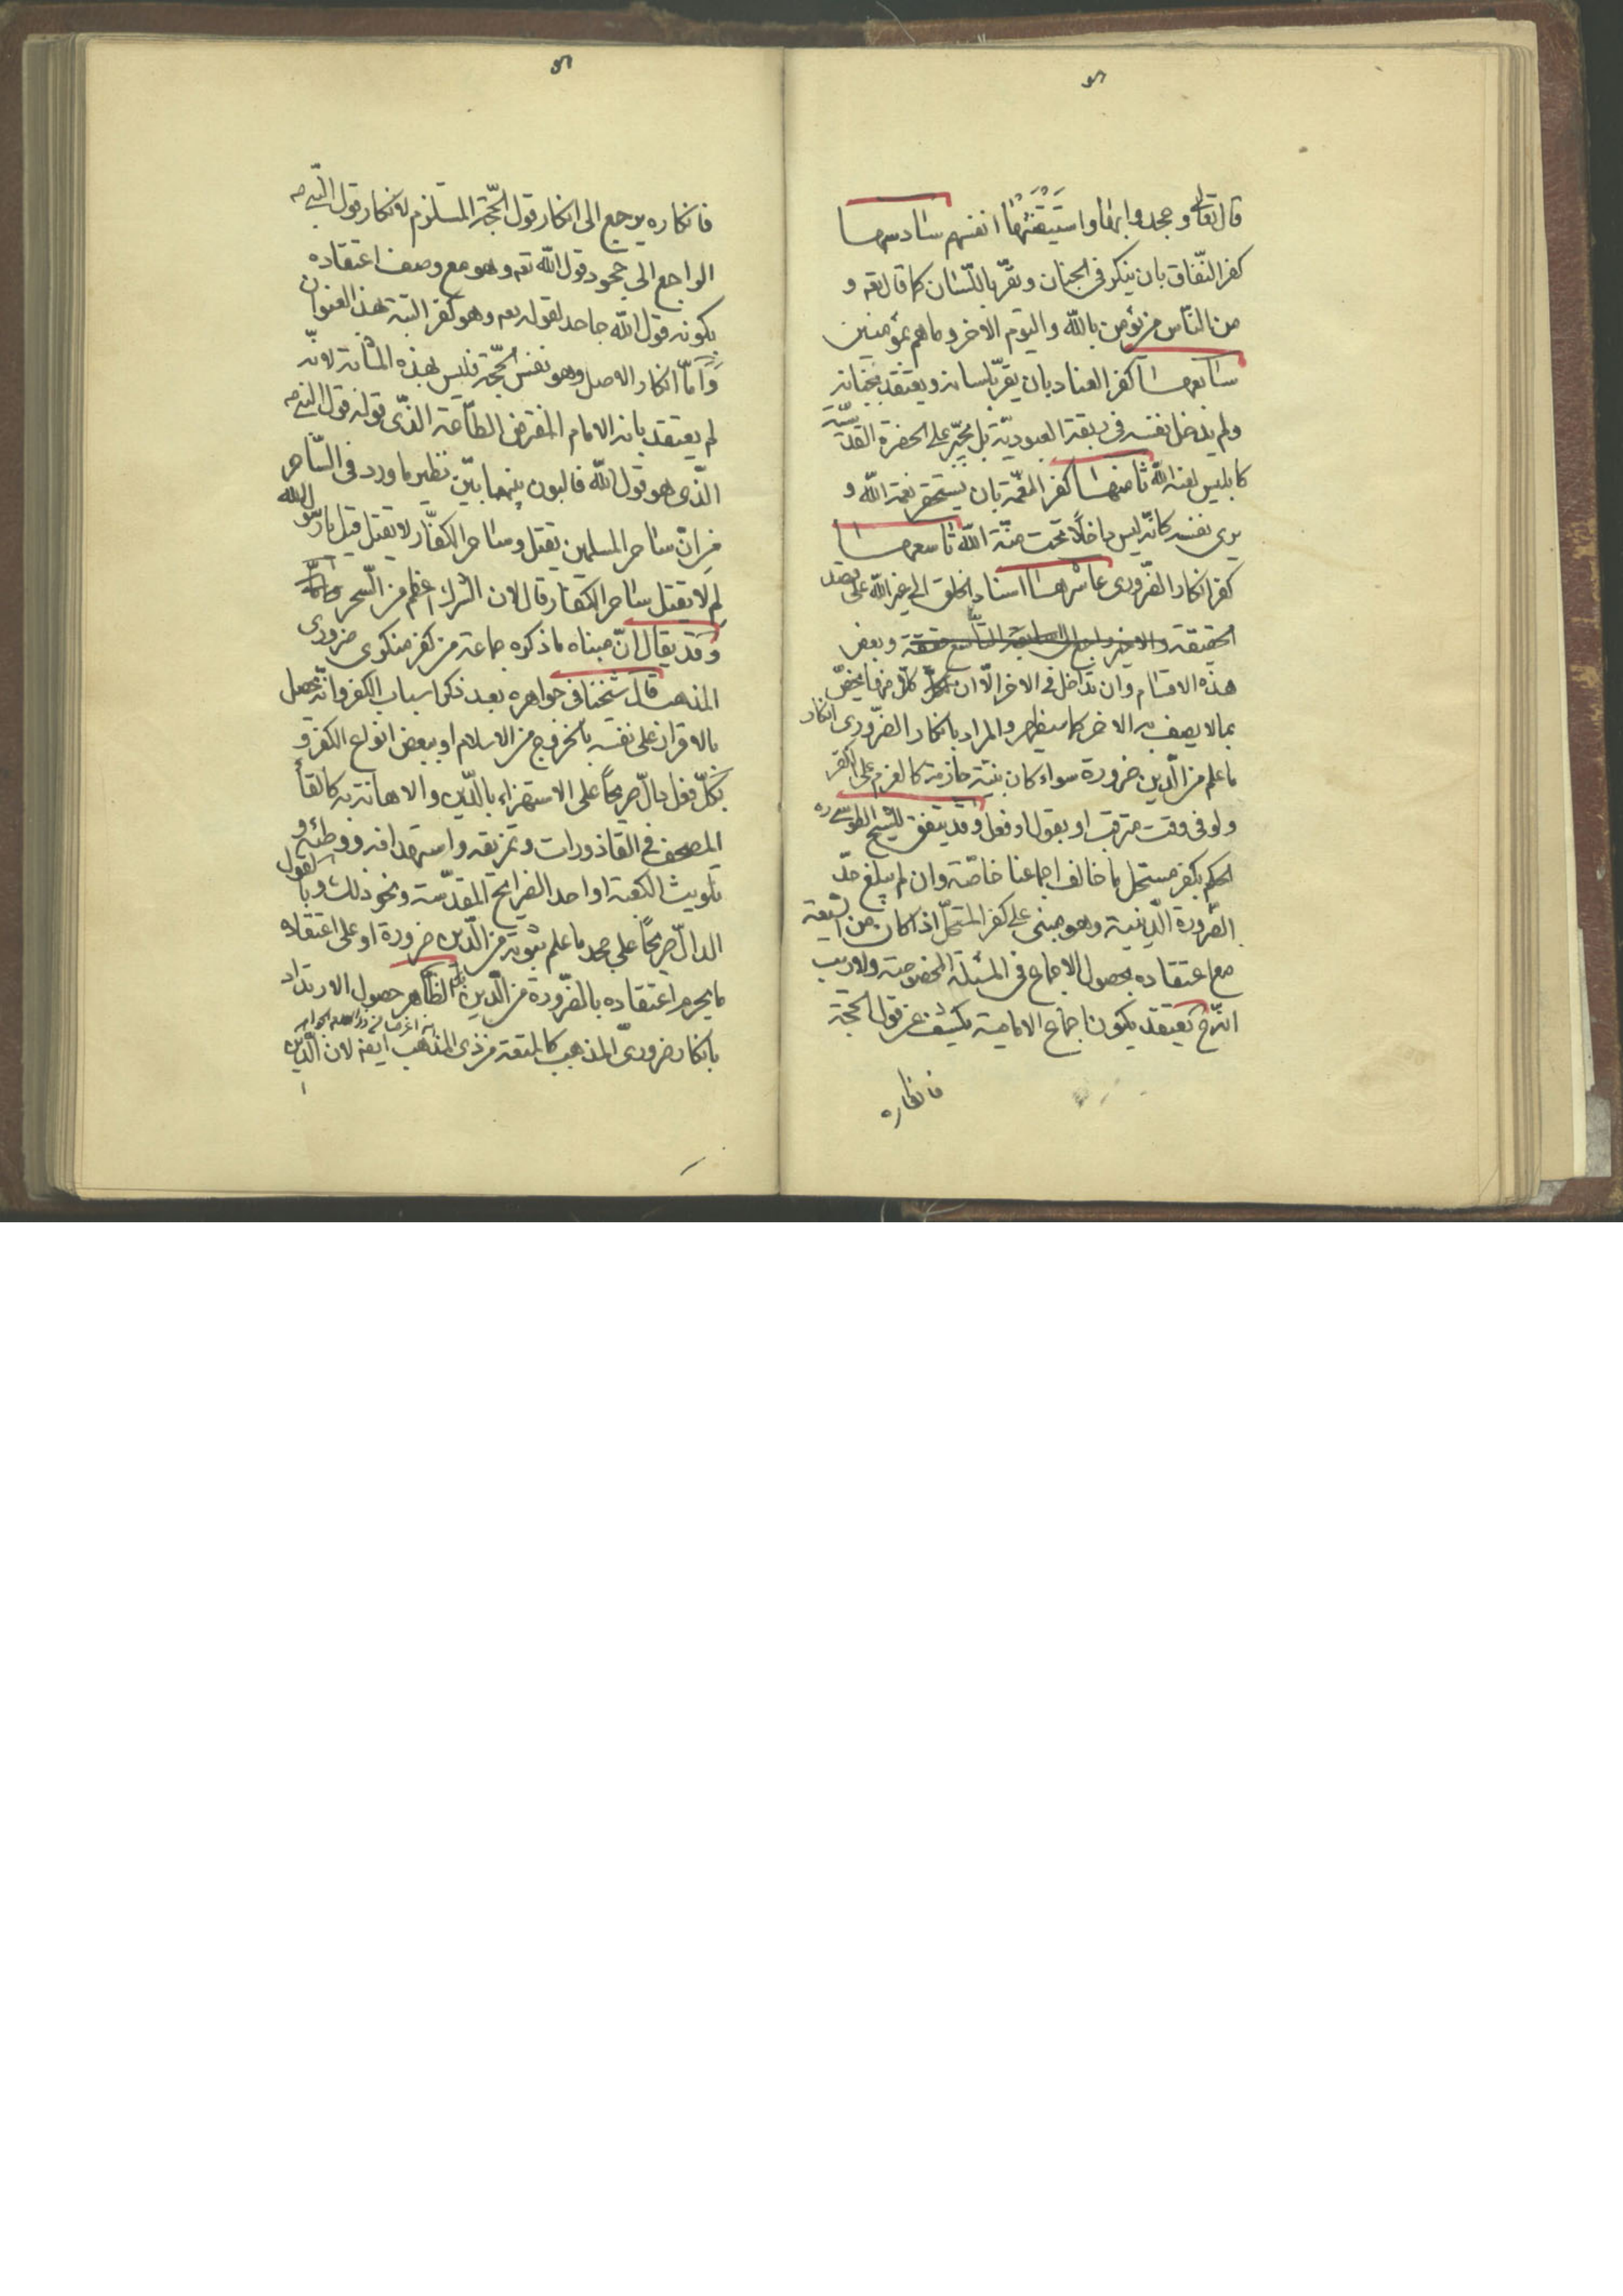 قال تعالى وجحدوا بها واستيقنتها انفسهم سادسها
كفر النّفاق بان ينكر فى الجنان ويقرّ باللّسان كما قال تعه و
من النّاس من يؤمن باللّه واليوم الاخر وما هم بمؤمنين
سابعها كفر العناد بان يقرّ بلسانه ويعتقد بجنانه
ولم يدخل نفسه فى ربقة العبوديّة بل على الحضرة القدسيّة
كابليس لعنه اللّه ثامنها كفر النّعمة بان يستحقر نعمة اللّه و
يرى نفسه كانّه ليس داخلا تحت منّة اللّه تاسعها
كفر انكار الضّرورى عاشرها اسناد الخلق الى غير اللّه على قصد
الحقيقة وبعض
هذه الاقسام وان تداخل فى الاخر الّا ان كلّ منها يختصّ
بما لا يصف به الاخر كما سيظهر والمراد بانكار الضّرورى انكار
ما علم من الدّين ضرورة سواء كان بنيّة جازمة كالعزم على الكفر
ولو فى وقت مترقب او بقول او فعل وقد يتفق للشّيخ الطوسى ره
الحكم بكفر مستحل ما خالف اجماعنا خاصّة وان لم يبلغ حدّ
الضّرورة الدّينية وهو مبنى على كفر المستحلّ اذا كان من الشيعة
مع اعتقاده بحصول الاجماع فى المسئلة المخصوصة ولا ريب
انّه ح يعتقد بكون اجماع الامامية يكشف عن قول الحجّة
فانكاره
فانكاره يرجع الى انكار قول الحجّة المستلزم لانكار قول النّبى ص
الراجع الى جحود قول اللّه تعه وهو مع وصف اعتقاده
بكونه قول اللّه جاحد لقوله تعه وهو كفر البتّة بهذا العنوان
وَامّا انكار الاصل وهو نفس الحجّة فليس بهذه المثابة لانّه
لم يعتقد بانه الامام المفترض الطّاعة الذّى قوله قول النّبى ص
الذّى هو قول اللّه فالبون بينهما بيّن نظير ما ورد فى السّاحر
من انّ ساحر المسلمين يقتل وساحر الكفّار لا يقتل قيل يا رسول اللّه
لِم لا يقتل ساحر الكفّار قال لان الشرك اعظم من السّحر
وقد يقال انّ مبناه ما ذكره جماعة من كفر منكرى ضرورى
المذهب قال شيخنا فى جواهره بعد ذكر اسباب الكفر وانّه يحصل
بالاقرار على نفسه بالخروج من الاسلام او ببعض انواع الكفر و
بكلّ فعل دالّ صريحاً على الاستهزاء بالدّين والاهانة به كالقاء
المصحف فى القاذورات وتمزيقه واستهدافه ووطئه و
تلويث الكعبة او احد الضرايح المقدّسة ونحو ذلك وبالقول
الدالّ صريحاً على جحد ما علم ثبوته من الدّين ضرورة او على اعتقاد
ما يحرم اعتقاده بالضّرورة من الدّين بل الظّاهر حصول الارتداد
بانكار ضرورىّ المذهب كالمتعة من ذى المذهب ايضه لان الدّين